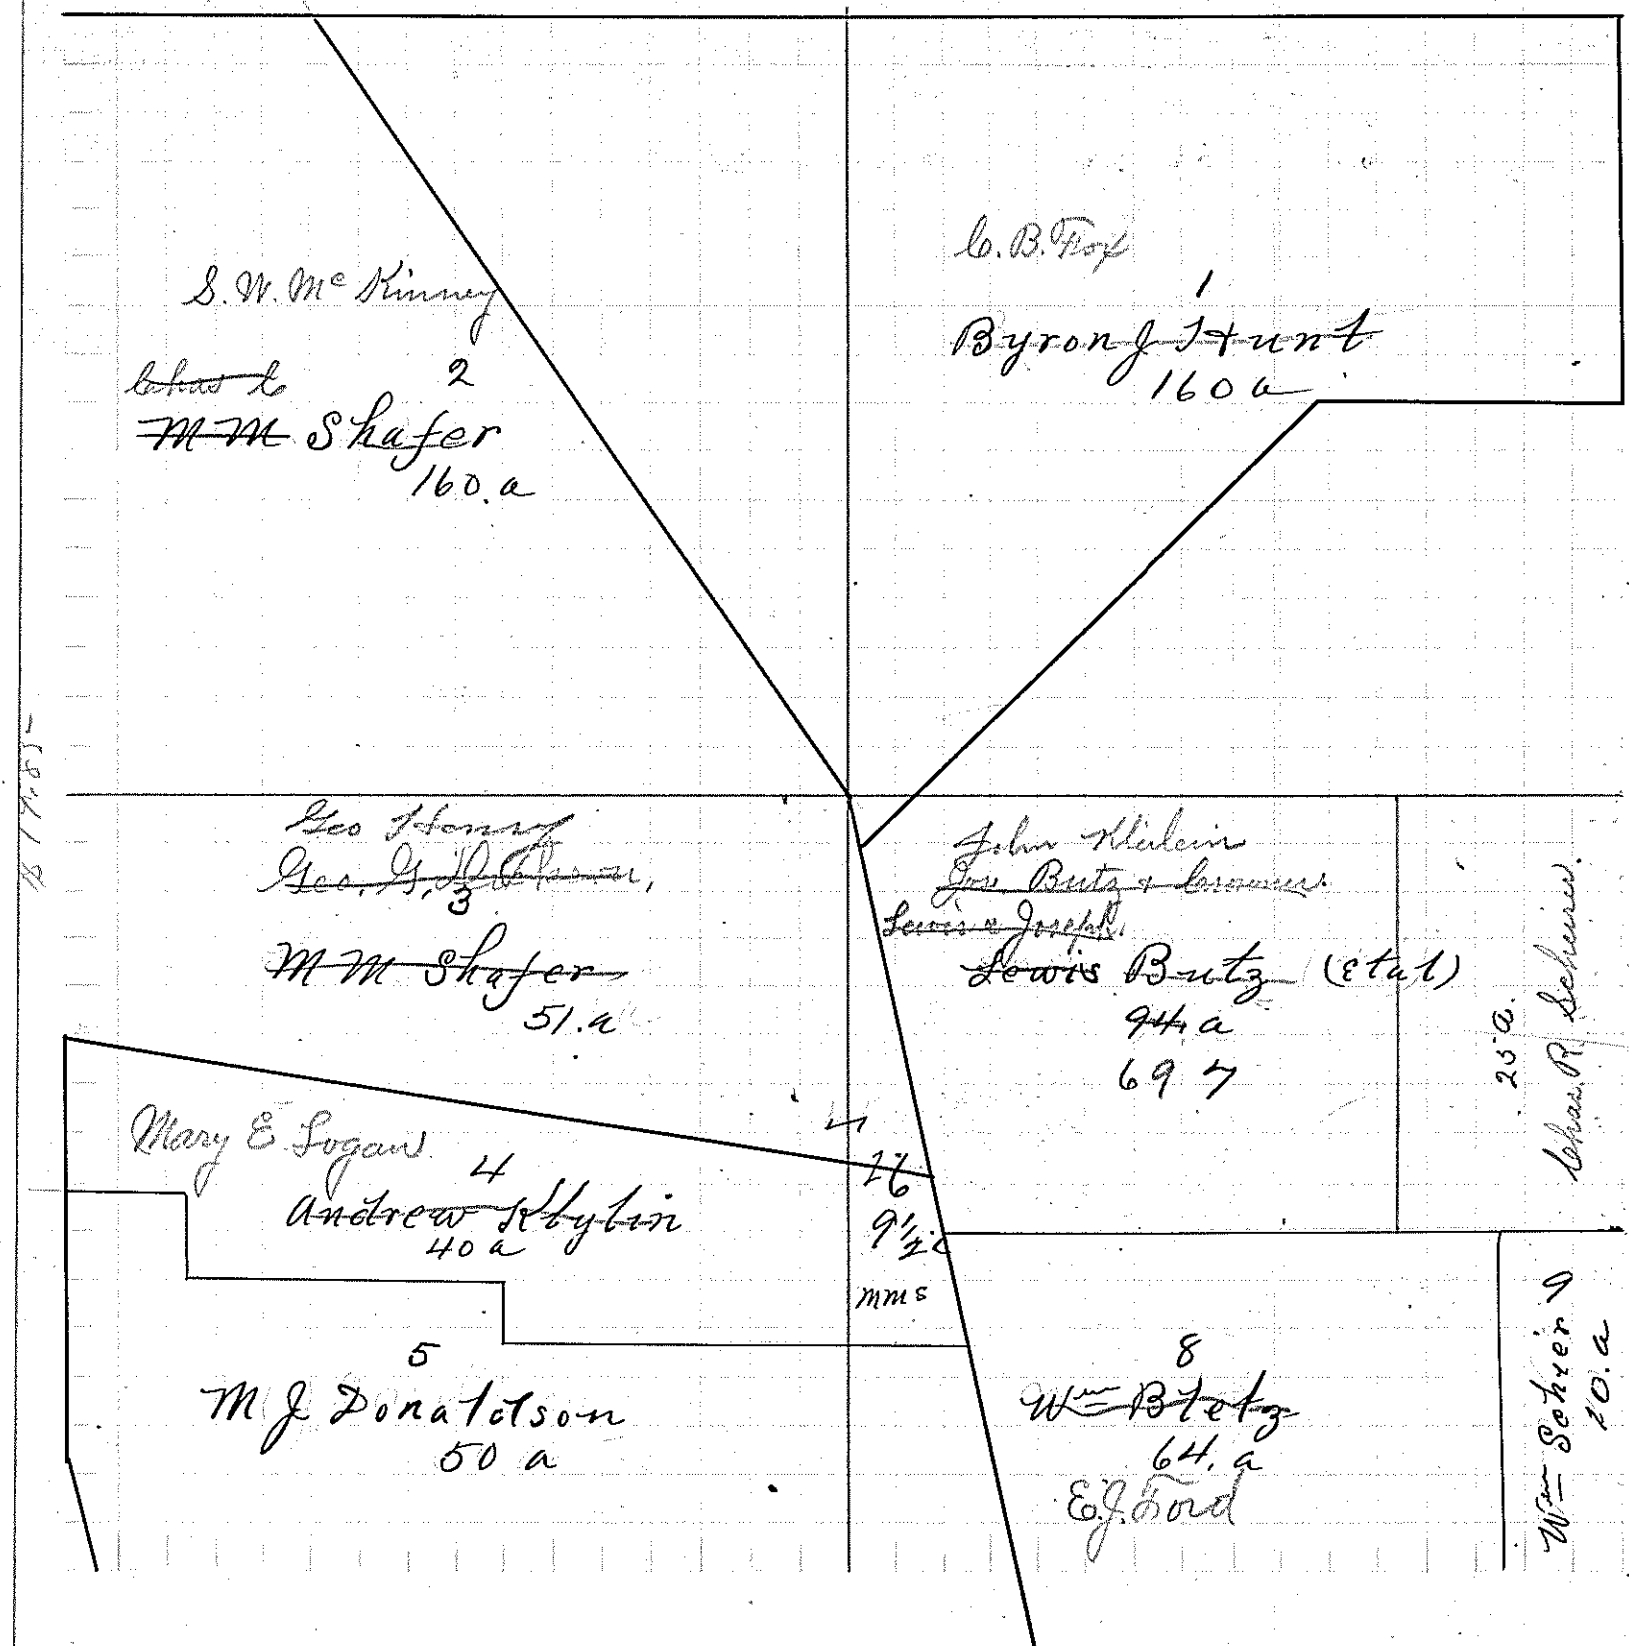 S. W. Mc Kinney
Chas C
2
M M Shafer
160. a
C. B. Fox
1
Byron J Hunt
160 a
Geo Henry
Geo. G.
3
M M Shafer
51. a
John
Jos. Butz &
Lewis & Joseph
Lewis Butz (Etal)
94. a
69 7
25 a.
Chas. R.
Mary E Logan
4
Andrew
40 a
26
9 1/2
MMS
5
M J Donaldson
50 a
8
Wm
64. a
E. J. Ford
Wm 9
20. a